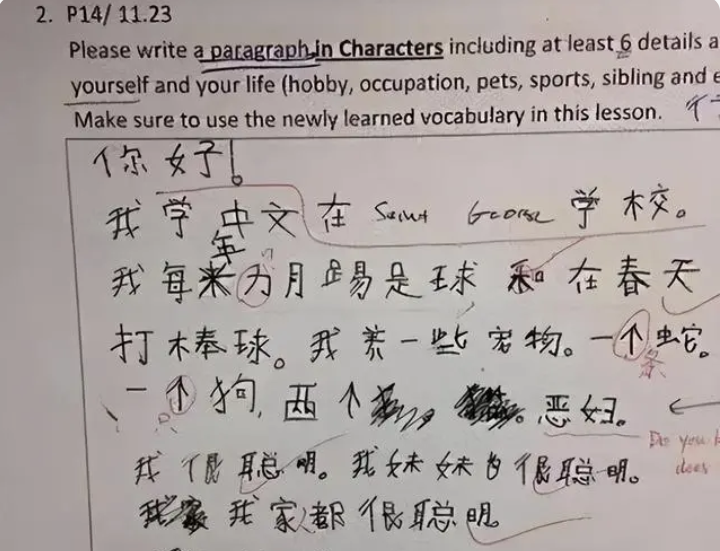 2. P14/ 11.23
Please write a paragraph in Characters including at least 6 details a
yourself and your life (hobby, occupation, pets, sports, sibling and e
Make sure to use the newly learned vocabulary in this lesson.
你好!
我学中文在 Saint George 学校。
年
我每为月踢是球和在春天
打棒球。我养一些宠物。一个蛇。
条
一个狗,两个。恶
Do you
does
我很聪明。我妹妹也很聪明。
我家都很聪明。